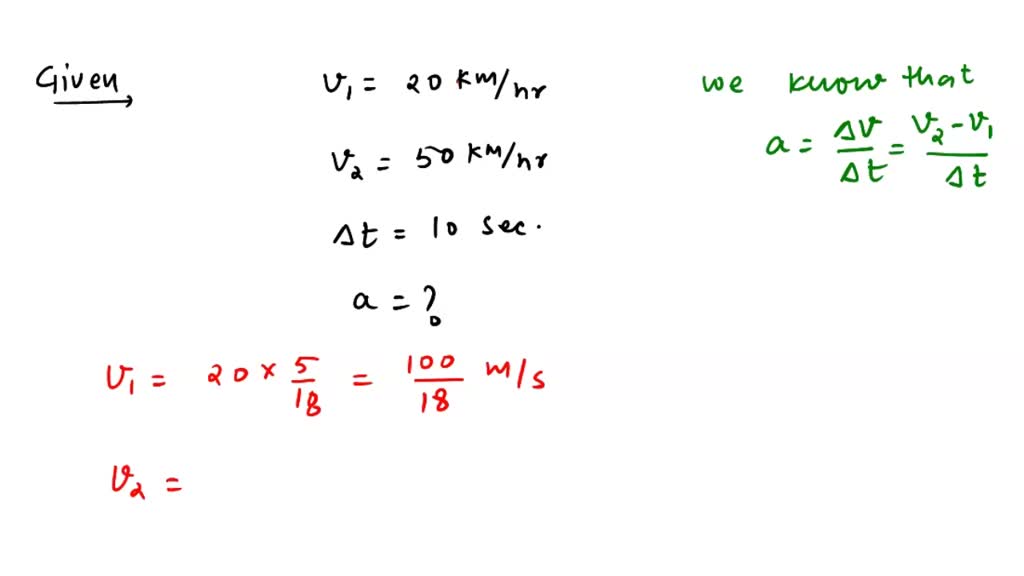 Given
v₁ = 20 km/hr
v₂ = 50 km/hr
Δt = 10 sec.
a = ?
we know that
a = Δv/Δt = v₂-v₁/Δt
v₁ = 20 × 5/18 = 100/18 m/s
v₂ =